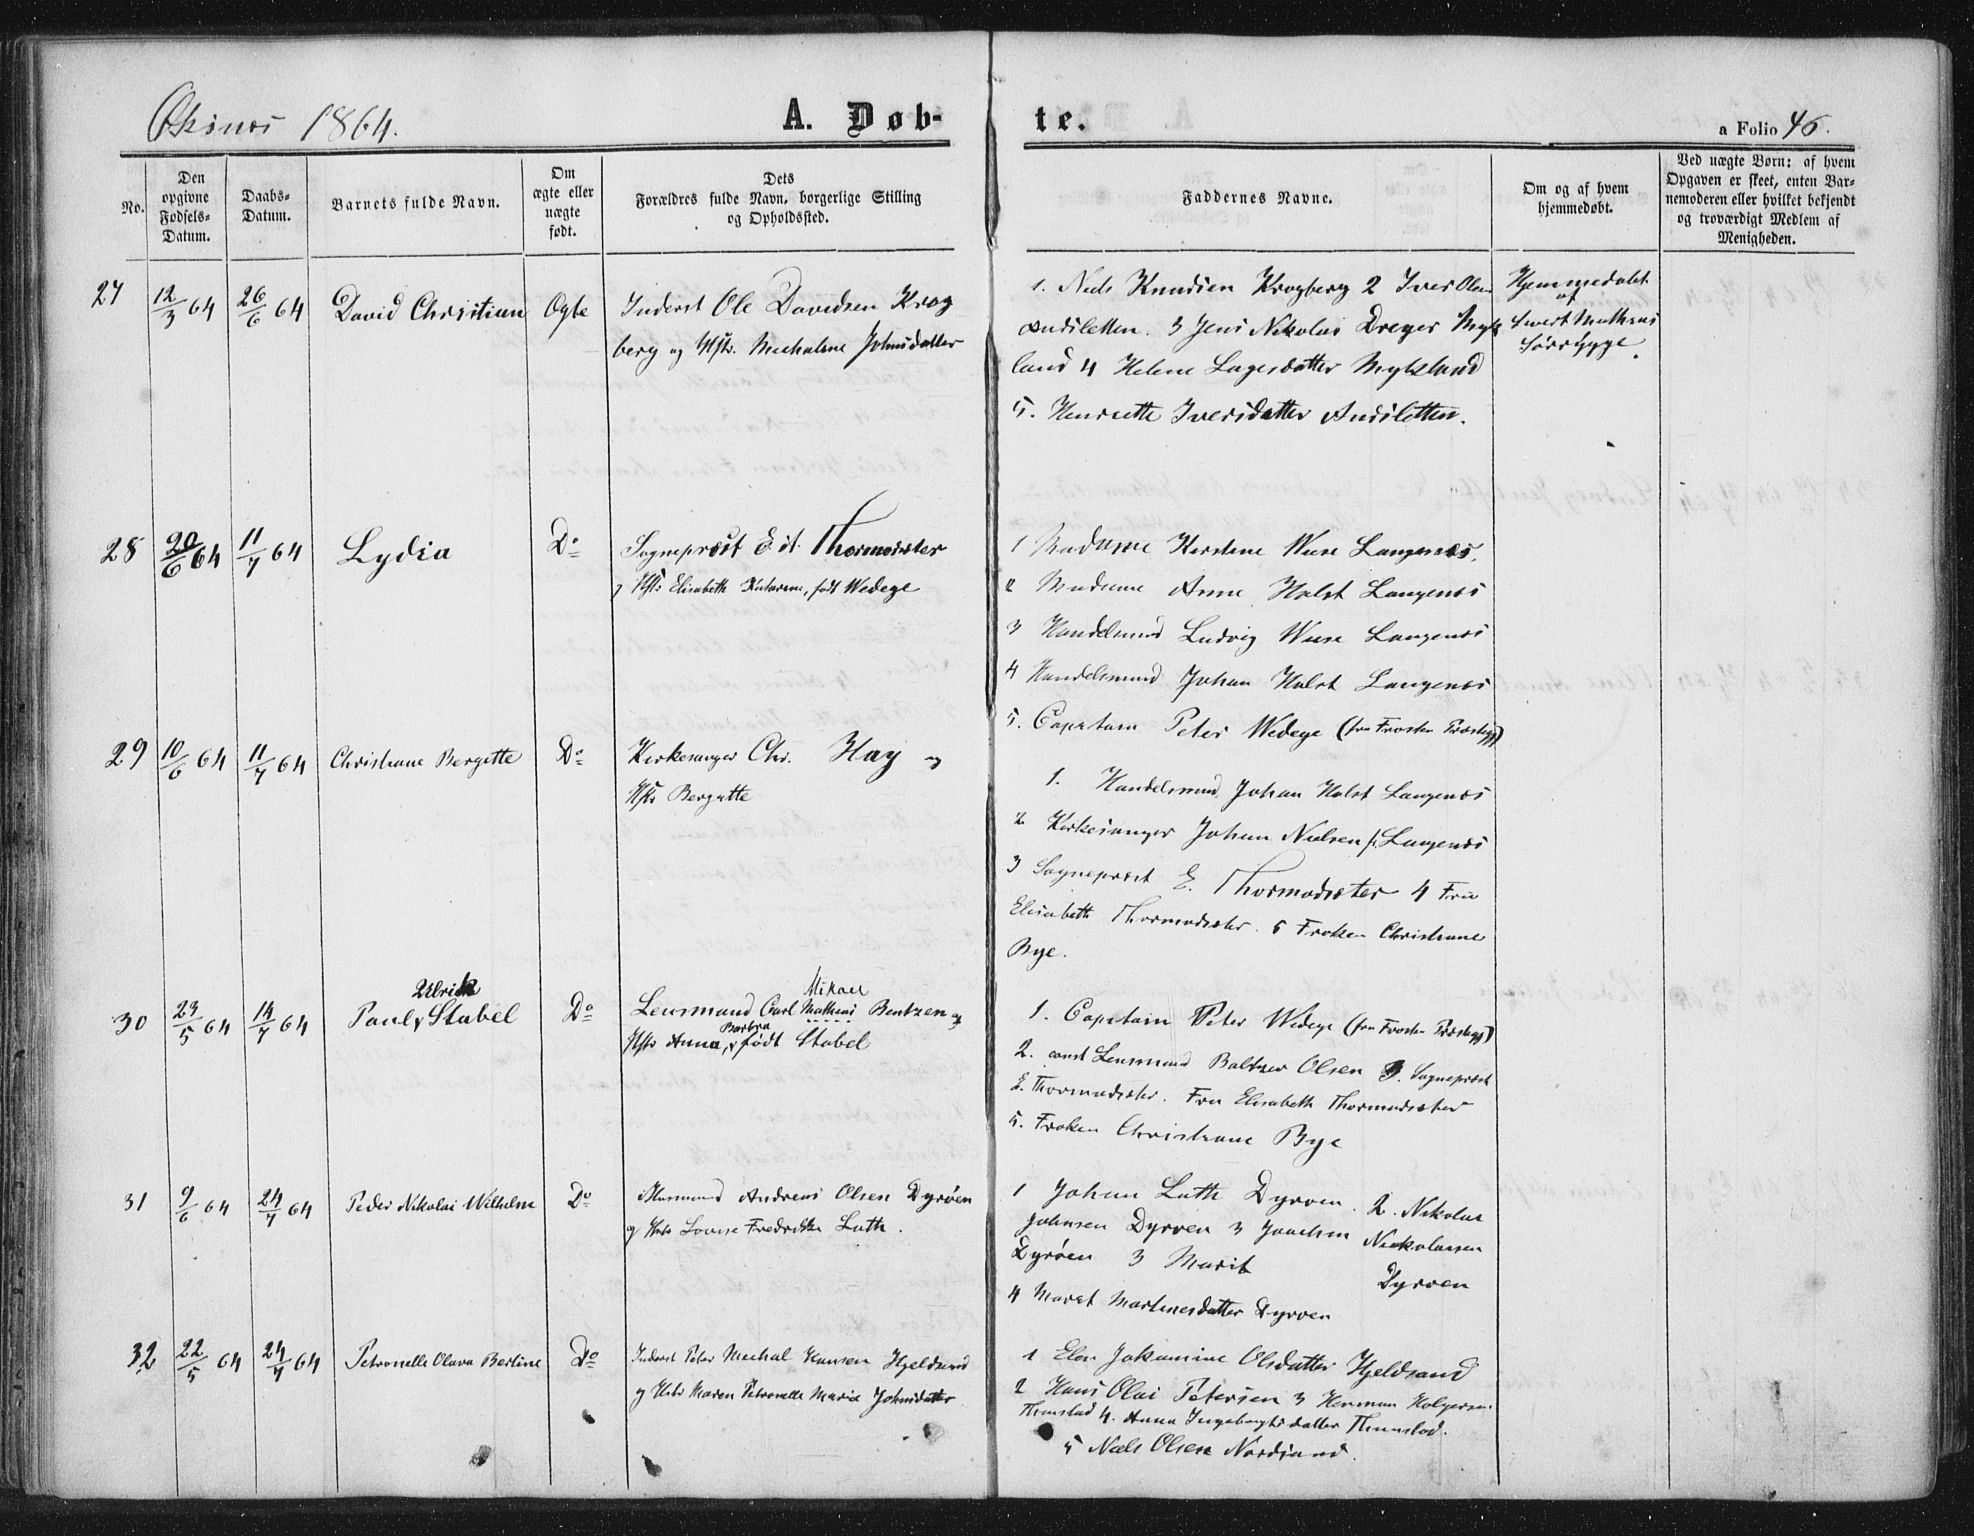 Øksnes 1864.
A. Døb-
te.
a Folio 46.
No.
Den opgivne Fødsels-Datum.
Daabs-Datum.
Barnets fulde Navn.
Om ægte eller uægte født.
Dets Forældres fulde Navn, borgerlige Stilling og Opholdssted.
Faddernes Navne.
Om og af hvem hjemmedøbt.
Ved uægte Børn: af hvem Opgaven er skeet, enten Barnemoderen eller hvilket bekjendt og troværdigt Medlem af Menigheden.
27 12/3 64 26/6 64 David Christian Ægte Inderst Ole Davidsen Krog
berg og Hstr. Michaline Johnsdatter
1. Niels Knudsen Krogberg 2 Iver Olsen
Andsletten. 3 Jens Nikolai Dreyer Myk
land 4 Helene Lagesdatter Mykland
5. Henriette Iversdatter Andsletten.
Hjemmedøbt
af
Sivert Mathias
28 20/6 64 11/7 64 Lydia Do
Sognepræst E. A. Thormodsæter
og Hstr Elisabeth Katarine, født Wedege
1 Madame Kirstine Wiese Langenes.
2 Madame Anne Holst Langenes
3 Handelsmand Ludvig Wiese Langenes
4 Handelsmand Johan Holst Langenes
5. Capitain Peter Wedege (fra Frosten Præstegj)
29 10/6 64 11/7 64 Christiane Bergitte Do
Kirkesanger Chr. Hay og
Hstr Bergitte
1. Handelsmand Johan Holst Langenes
2 Kirkesanger Johan Nielsen Langenes
3 Sognepræst E. Thormodsæter 4 Fru
Elisabeth Thormodsæter. 5 Frøken Christiane
Bye.
30 23/5 64 14/7 64 Paul Ulrik Stabel Do
Lensmand Carl Mikael Mathias Bentzen og
Hstr Anna Barbra, født Stabel
1. Capitain Peter Wedege (fra Frosten Præstegj)
2. const Lensmand Baltzer Olsen 3. Sognepræst
E. Thormodsæter. Fru Elisabeth Thormodsæter
5. Frøken Christiane Bye
31 9/6 64 24/7 64 Peder Nikolai Wilhelm Do
Huusmand Andreas Olsen Dyrøen
og Hstr Lovise Fredrikke Luth.
1 Johan Luth Dyrøen. 2. Nikolai
Johnsen Dyrøen 3 Joachim Nickolaisen
Dyrøen 3 Marit Dyrøen
4 Maret Martinesdatter Dyrøen
32 22/5 64 24/7 64 Petronelle Olava Berline Do
Inderst Peter Michal Hansen Hjeldsand
og Hstr Maren Petronelle Maria Johnsdatter
1 Elen Jakomine Olsdatter Hjeldsand
2 Hans Olai Petersen 3 Herman Holgersen
Thinnstad 4. Anna Ingebrigtsdatter Thinnstad.
5 Niels Olsen Nordsand.